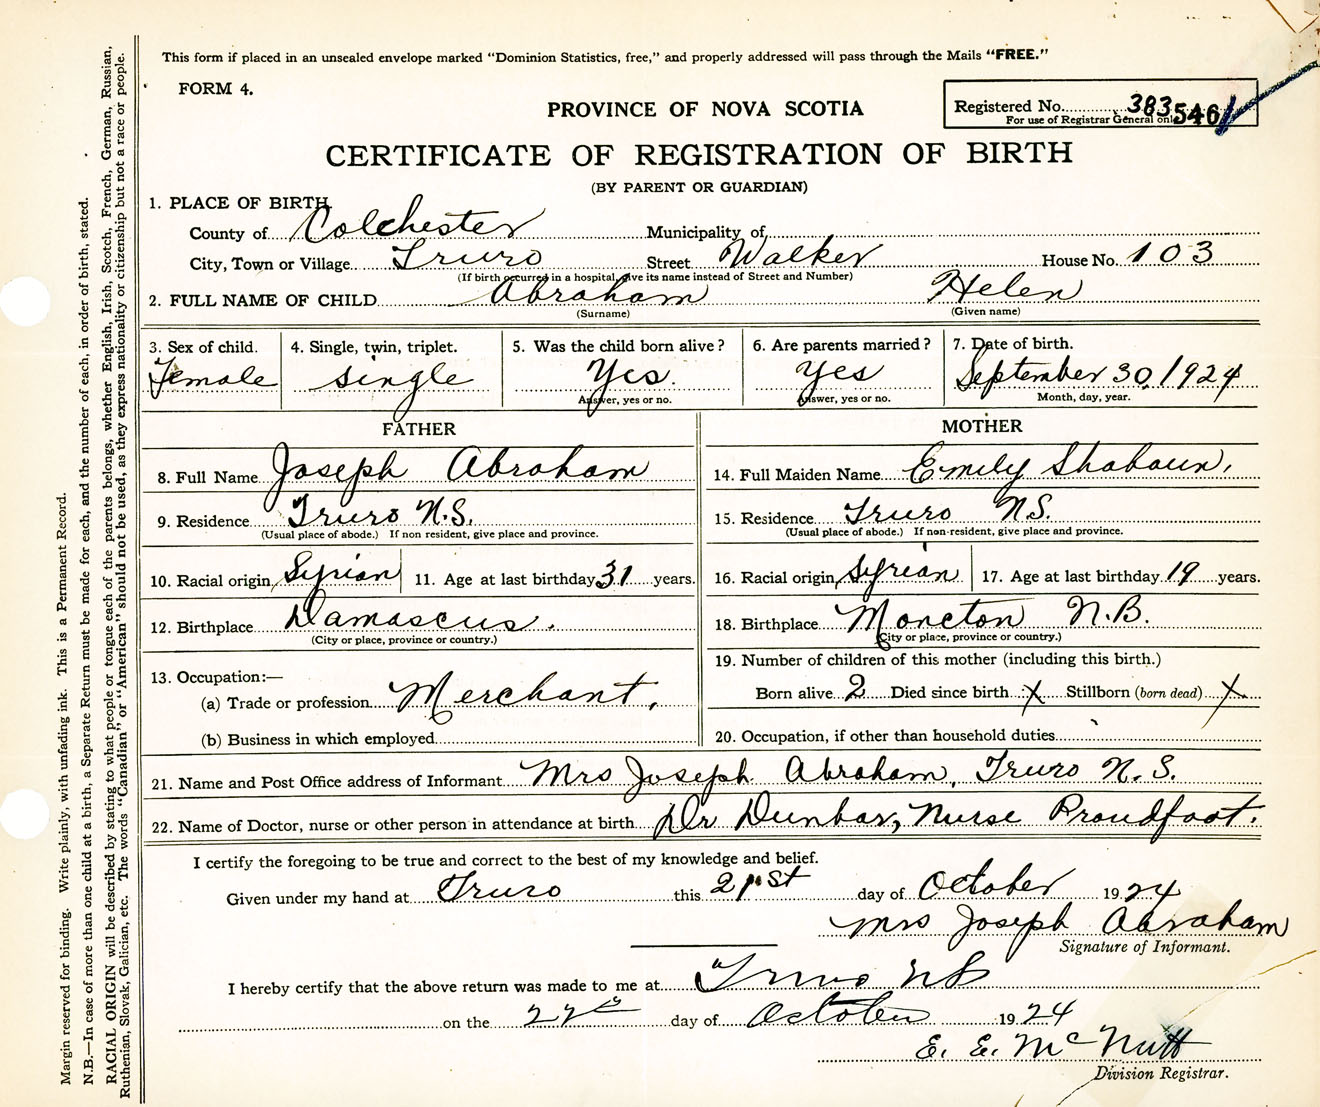 This form if placed in an unsealed envelope marked "Dominion Statistics, free," and properly addressed will pass through the Mails "FREE."
FORM 4.
PROVINCE OF NOVA SCOTIA
Registered No. 383 546
For use of Registrar General only
CERTIFICATE OF REGISTRATION OF BIRTH
(BY PARENT OR GUARDIAN)
1. PLACE OF BIRTH
County of Colchester Municipality of
City, Town or Village Truro Street Walker House No. 103
(If birth occurred in a hospital, give its name instead of Street and Number)
2. FULL NAME OF CHILD Abraham Helen
(Surname) (Given name)
3. Sex of child. 4. Single, twin, triplet. 5. Was the child born alive? 6. Are parents married? 7. Date of birth.
Female single Yes. Yes September 30, 1924
Answer, yes or no. Answer, yes or no. Month, day, year.
FATHER MOTHER
8. Full Name Joseph Abraham 14. Full Maiden Name Emily Shaboun,
9. Residence Truro N.S. 15. Residence Truro N.S.
(Usual place of abode.) If non resident, give place and province. (Usual place of abode.) If non-resident, give place and province.
10. Racial origin Syrian 11. Age at last birthday 31 years. 16. Racial origin Syrian 17. Age at last birthday 19 years.
12. Birthplace Damascus. 18. Birthplace Moncton N.B.
(City or place, province or country.) (City or place, province or country.)
13. Occupation:— 19. Number of children of this mother (including this birth.)
(a) Trade or profession Merchant, Born alive 2 Died since birth X Stillborn (born dead) X
(b) Business in which employed 20. Occupation, if other than household duties
21. Name and Post Office address of Informant Mrs Joseph Abraham, Truro N.S.
22. Name of Doctor, nurse or other person in attendance at birth Dr Dunbar, Nurse Proudfoot.
I certify the foregoing to be true and correct to the best of my knowledge and belief.
Given under my hand at Truro this 21st day of October 1924
Mrs Joseph Abraham
Signature of Informant.
I hereby certify that the above return was made to me at Truro NS
on the 22nd day of October 1924
E. E. McNutt
Division Registrar.
Margin reserved for binding. Write plainly, with unfading ink. This is a Permanent Record.
N.B.—In case of more than one child at a birth, a Separate Return must be made for each, and the number of each, in order of birth, stated.
RACIAL ORIGIN will be described by stating to what people or tongue each of the parents belongs, whether English, Irish, Scotch, French, German, Russian,
Ruthenian, Slovak, Galician, etc. The words "Canadian" or "American" should not be used, as they express nationality or citizenship but not a race or people.